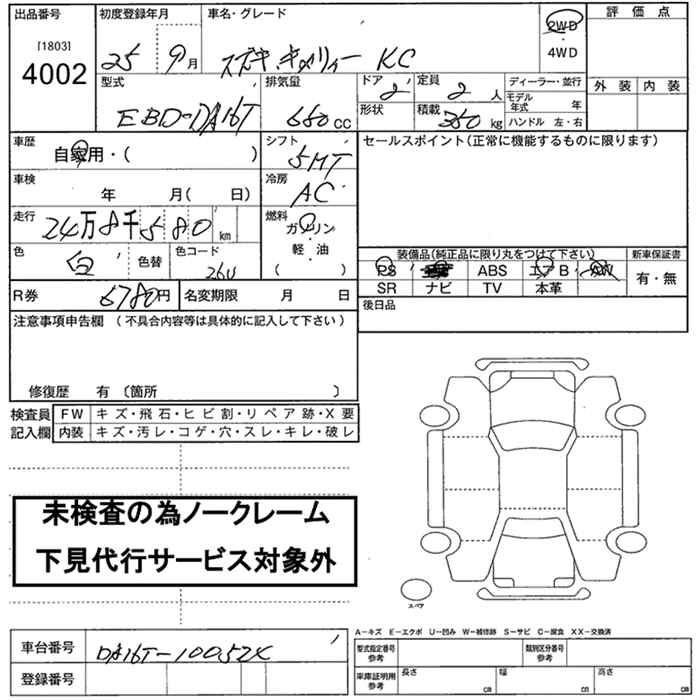 出品番号 初度登録年月 車名・グレード 評価点
[1803] 4002 25 9月 スズキ キャリィー KC 2WD・4WD
外装 内装
型式 排気量 ドア 定員 ディーラー・並行
EBD-DA16T 660cc 2 2人 モデル年式 年
形状 積載 350kg ハンドル 左・右
車歴 シフト セールスポイント(正常に機能するものに限ります)
自家用・( ) 5MT
車検 年 月( 日) 冷房 AC
走行 24万8千580km 燃料 ガソリン
軽・油
( )
色 白 色替 色コード 26U
装備品(純正品に限り丸をつけて下さい) 新車保証書
PS ABS エアB AW 有・無
SR ナビ TV 本革
R券 6780円 名変期限 月 日
後日品
注意事項申告欄 (不具合内容等は具体的に記入して下さい)
修復歴 有 〔箇所 〕
検査員 FW キズ・飛石・ヒビ割・リペア跡・X要
記入欄 内装 キズ・汚レ・コゲ・穴・スレ・キレ・破レ
未検査の為ノークレーム
下見代行サービス対象外
スペア
A－キズ E－エクボ U－凹み W－補修跡 S－サビ C－腐食 XX－交換済
車台番号 DA16T-10052X
登録番号
型式指定番号 参考 類別区分番号 参考
車庫証明用 参考 長さ cm 幅 cm 高さ cm